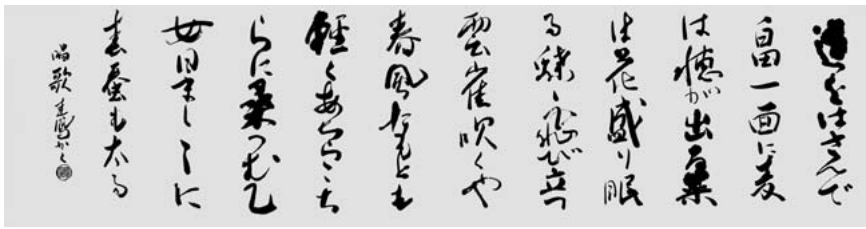 道をはさんで
畠一面に麦
は穂が出る菜
は花盛り眠
る蝶々飛び立つ
雲雀吹くや
春風たもとも
軽くあちらこち
らに桑つむ乙
女日まし〱に
春蚕も太る
唱歌 かく